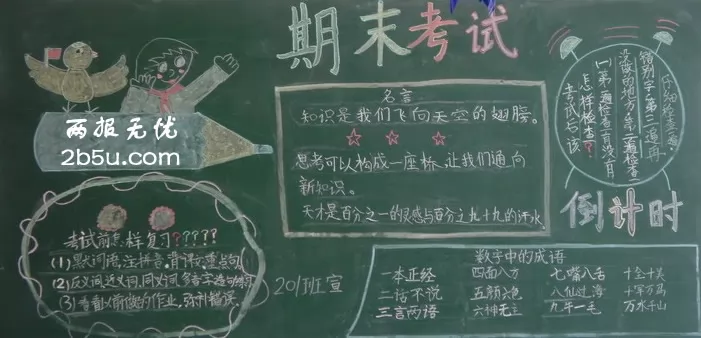 期末考试
两报无优
2b5u.com
名言
知识是我们飞向天空的翅膀。
思考可以构成一座桥，让我们通向
新知识。
天才是百分之一的灵感与百分之九十九的汗水
考试后该
怎样检查?
(一)第一遍检查有没有
没做的地方,第二遍检查
错别字,第三遍再
仔细检查一遍
倒计时
考试前怎样复习?????
(1)默词语,注拼音,背课文,重点句
(2)反义词,近义词,同义词,多音字,造句练习
(3)看看以前做的作业,弥补错误
201班宣
数字中的成语
一本正经 四面八方 七嘴八舌 十全十美
二话不说 五颜六色 八仙过海 千军万马
三言两语 六神无主 九牛一毛 万水千山